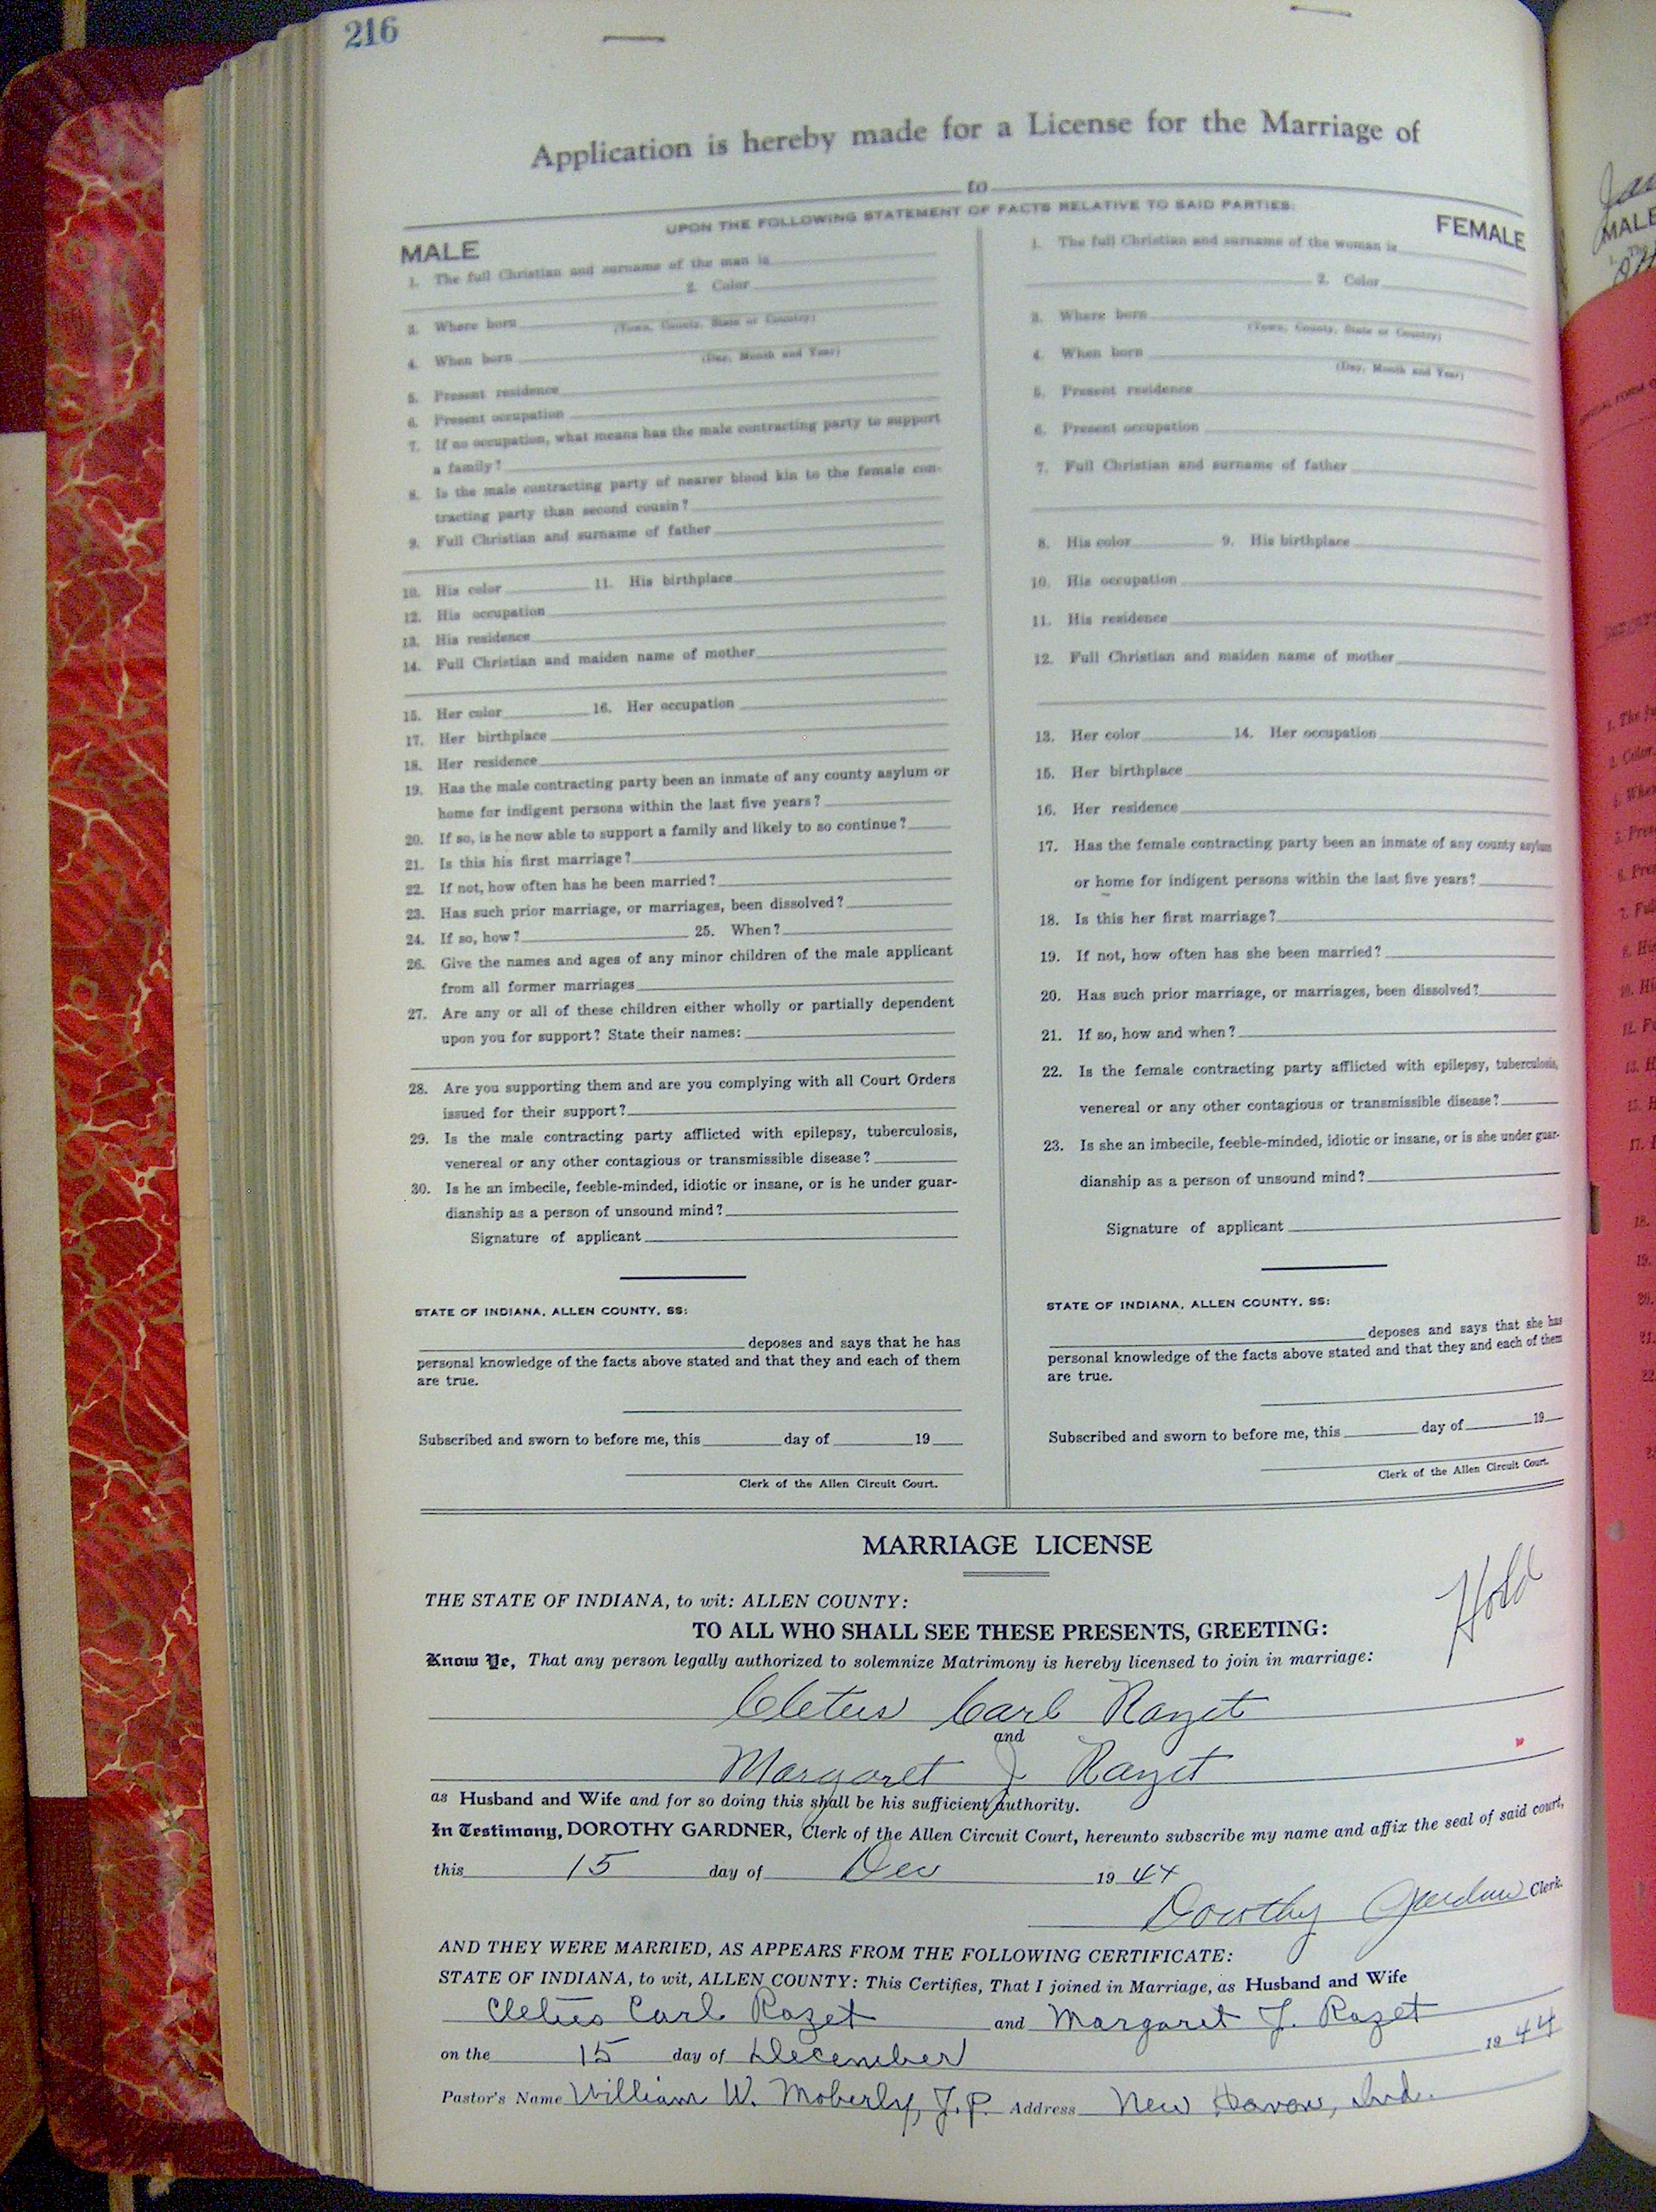 216
Application is hereby made for a License for the Marriage of
to
UPON THE FOLLOWING STATEMENT OF FACTS RELATIVE TO SAID PARTIES:
MALE
1. The full Christian and surname of the man is
2. Color
3. Where born
(Town, County, State or Country)
4. When born
(Day, Month and Year)
5. Present residence
6. Present occupation
7. If no occupation, what means has the male contracting party to support
a family?
8. Is the male contracting party of nearer blood kin to the female con-
tracting party than second cousin?
9. Full Christian and surname of father
10. His color 11. His birthplace
12. His occupation
13. His residence
14. Full Christian and maiden name of mother
15. Her color 16. Her occupation
17. Her birthplace
18. Her residence
19. Has the male contracting party been an inmate of any county asylum or
home for indigent persons within the last five years?
20. If so, is he now able to support a family and likely to so continue?
21. Is this his first marriage?
22. If not, how often has he been married?
23. Has such prior marriage, or marriages, been dissolved?
24. If so, how? 25. When?
26. Give the names and ages of any minor children of the male applicant
from all former marriages
27. Are any or all of these children either wholly or partially dependent
upon you for support? State their names:
28. Are you supporting them and are you complying with all Court Orders
issued for their support?
29. Is the male contracting party afflicted with epilepsy, tuberculosis,
venereal or any other contagious or transmissible disease?
30. Is he an imbecile, feeble-minded, idiotic or insane, or is he under guar-
dianship as a person of unsound mind?
Signature of applicant
STATE OF INDIANA, ALLEN COUNTY, SS:
deposes and says that he has
personal knowledge of the facts above stated and that they and each of them
are true.
Subscribed and sworn to before me, this day of 19
Clerk of the Allen Circuit Court.
FEMALE
1. The full Christian and surname of the woman is
2. Color
3. Where born
(Town, County, State or Country)
4. When born
(Day, Month and Year)
5. Present residence
6. Present occupation
7. Full Christian and surname of father
8. His color 9. His birthplace
10. His occupation
11. His residence
12. Full Christian and maiden name of mother
13. Her color 14. Her occupation
15. Her birthplace
16. Her residence
17. Has the female contracting party been an inmate of any county asylum
or home for indigent persons within the last five years?
18. Is this her first marriage?
19. If not, how often has she been married?
20. Has such prior marriage, or marriages, been dissolved?
21. If so, how and when?
22. Is the female contracting party afflicted with epilepsy, tuberculosis,
venereal or any other contagious or transmissible disease?
23. Is she an imbecile, feeble-minded, idiotic or insane, or is she under guar-
dianship as a person of unsound mind?
Signature of applicant
STATE OF INDIANA, ALLEN COUNTY, SS:
deposes and says that she has
personal knowledge of the facts above stated and that they and each of them
are true.
Subscribed and sworn to before me, this day of 19
Clerk of the Allen Circuit Court.
MARRIAGE LICENSE
Hold
THE STATE OF INDIANA, to wit: ALLEN COUNTY:
TO ALL WHO SHALL SEE THESE PRESENTS, GREETING:
Know Ye, That any person legally authorized to solemnize Matrimony is hereby licensed to join in marriage:
Cletus Carl Razet
and
Margaret J Razet
as Husband and Wife and for so doing this shall be his sufficient authority.
In Testimony, DOROTHY GARDNER, Clerk of the Allen Circuit Court, hereunto subscribe my name and affix the seal of said court,
this 15 day of Dec 19 44
Dorothy Gardner Clerk.
AND THEY WERE MARRIED, AS APPEARS FROM THE FOLLOWING CERTIFICATE:
STATE OF INDIANA, to wit, ALLEN COUNTY: This Certifies, That I joined in Marriage, as Husband and Wife
Cletus Carl Razet and Margaret J. Razet
on the 15 day of December 19 44
Pastor's Name William W. Moberly, J.P. Address New Haven, Ind.